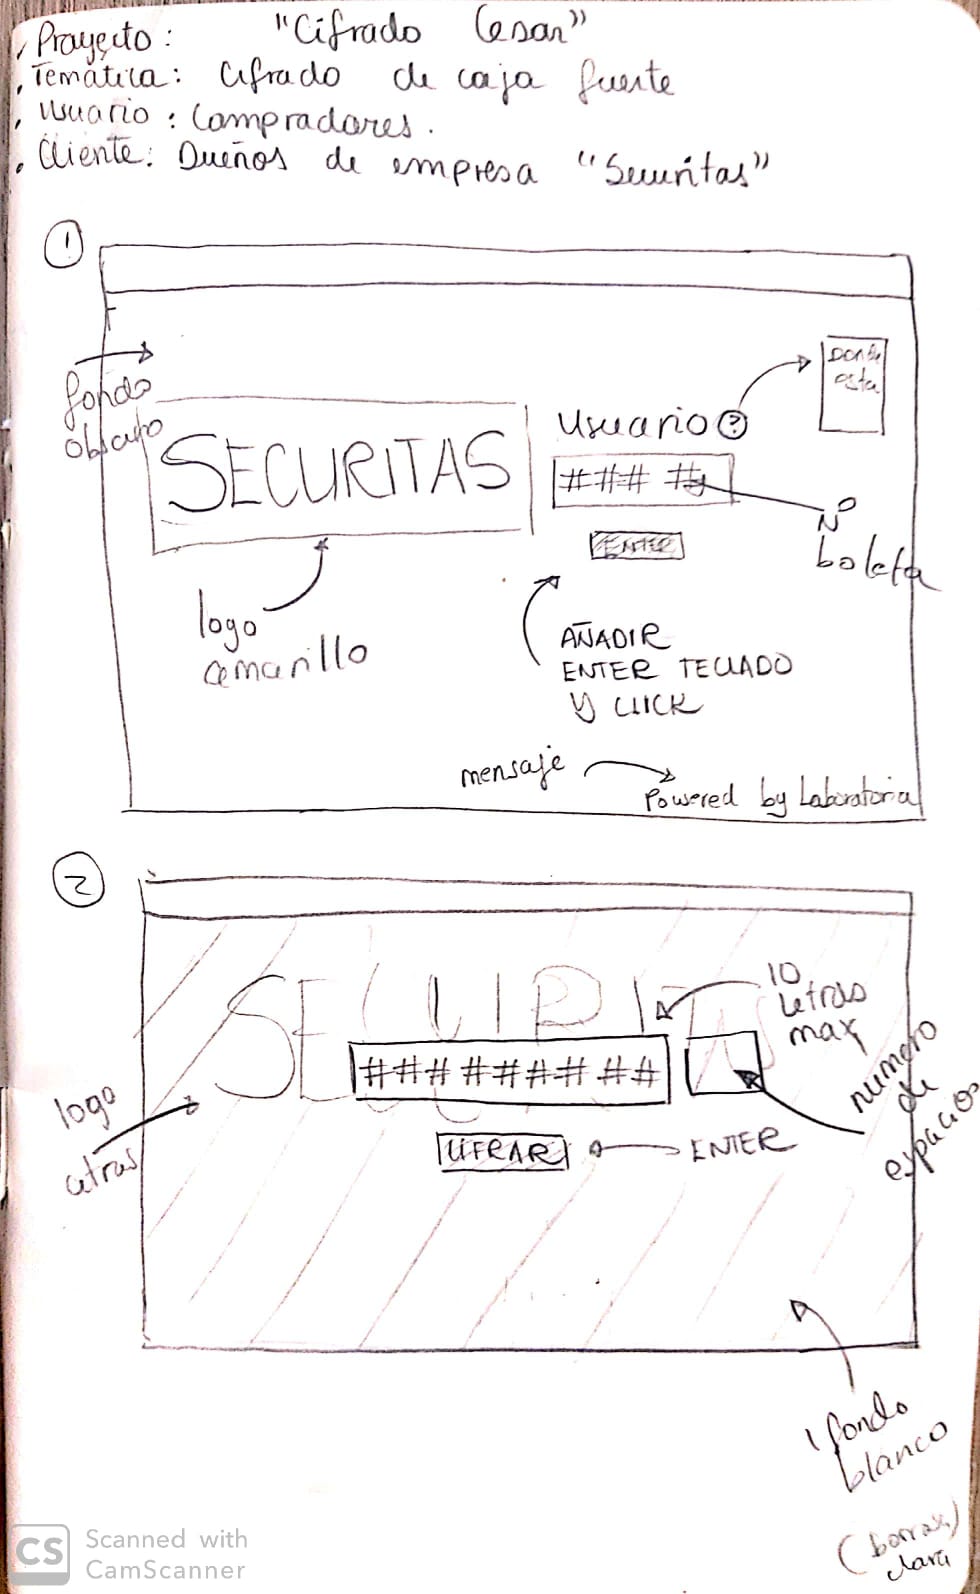 Proyecto: "Cifrado Cesar"
Temática: Cifrado de caja fuerte
Usuario: Compradores.
Cliente: Dueños de empresa "Securitas"
1
fondo
obscuro
Donde
esta
Usuario ?
SECURITAS
### ##
ENTER
Nº
boleta
logo
amarillo
AÑADIR
ENTER TECLADO
y CLICK
mensaje
Powered by Laboratoria
2
SECURITAS
10
letras
max
##########
numero
de
espacios
logo
letras
CIFRAR
ENTER
fondo
blanco
CS Scanned with
CamScanner